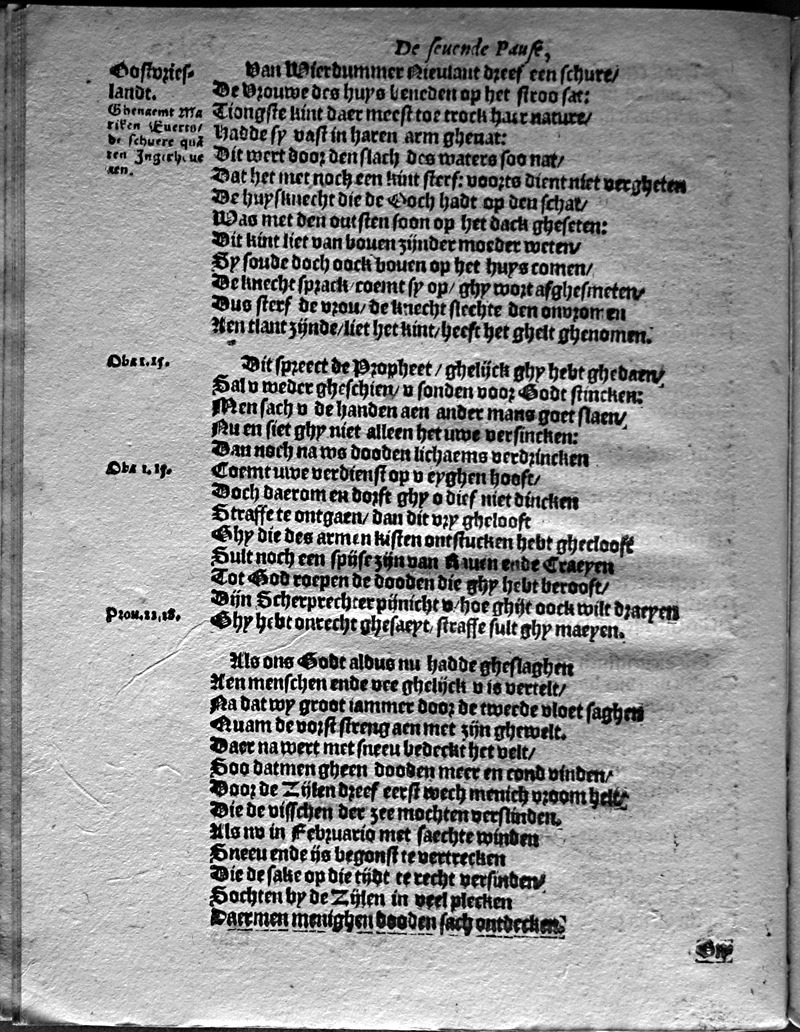 De sevende Pause,
Oostvries-
landt.
Ghenaemt Ma
riken Euerts/
de schuere quã
ten Ingerheue
aen.
Van Wierdummer Nieulant dreef een schure/
De Vrouwe des huys beneden op het stroo sat:
Tiongste kint daer meest toe trock haer nature/
Hadde sy vast in haren arm ghevat:
Dit wert door den slach des waters soo nat/
Dat het met noch een kint sterf: voorts dient niet vergheten
De huysknecht die de Goch hadt op den schat/
Was met den outsten soon op het dack gheseten:
Dit kint liet van bouen zijnder moeder weten/
Sy soude doch oock bouen op het huys comen/
De knecht sprack/ coemt sy op/ ghy wort afghesmeten/
Dus sterf de vrou/ de knecht slechte den onvromen
Aen tlant zijnde/ liet het kint/ heeft het ghelt ghenomen.
Oba 1.15.
Dit spreect de Propheet/ ghelijck ghy hebt ghedaen/
Sal v weder gheschien/ v sonden voor Godt stincken:
Men sach v de handen aen ander mans goet slaen/
Nu en siet ghy niet alleen het uwe versincken:
Dan noch na ws dooden lichaems verdrincken
Oba 1.15.
Coemt uwe verdienst op v eyghen hooft/
Doch daerom en dorft ghy o dief niet dincken
Straffe te ontgaen/ dan dit vry ghelooft
Ghy die des armen kisten ontstucken hebt gheclooft
Sult noch een spijse zijn van Rauen ende Craeyen
Tot God roepen de dooden die ghy hebt berooft/
Dijn Scherprechter pijnicht v/ hoe ghijt oock wilt draeyen
Prou.22,18.
Ghy hebt onrecht ghesaeyt/ straffe sult ghy maeyen.
Als ons Godt aldus nu hadde gheslaghen
Aen menschen ende vee ghelijck v is vertelt/
Na dat wy groot iammer door de tweede vloet saghen
Quam de vorst streng aen met zijn ghewelt.
Daer na wert met sneeu bedeckt het velt/
Soo datmen gheen dooden meer en cond vinden/
Door de Zijlen dreef eerst wech menich vroom helt/
Die de visschen der zee mochten verslinden.
Als nv in Februario met saechte winden
Sneeu ende ijs begonst te vertrecken
Die de sake op die tijdt te recht versinden/
Sochten by de Zijlen in veel plecken
Daermen menighen dooden sach ontdecken.